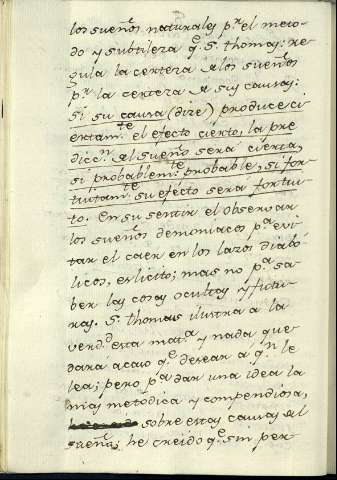 los sueños naturales pr. el meto-
do y subtileza q.e S. thomas: re-
gula la certeza de los sueños
pr. la certeza de sus causas:
si su causa (dize) produce ci-
ertam.te el efecto cierto, la pre
dicc.n del sueño sera cierta,
si probablem.te probable, si for-
tuitam.te su efecto sera fortui-
to. En su sentir el observar
los sueños demoniacos p.a evi-
tar el caer en los lazos diabo-
licos, es licito; mas no p.a sa-
ber las cosas ocultas y futu-
ras. S. thomas ilustra a la
verd.d esta mat.a y nada que
dará acaso q.e desear a q.n le
lea; pero p.a dar una idea la
mas metodica y compendiosa,
sobre estas causas del
sueño, he creido q.e sin per-